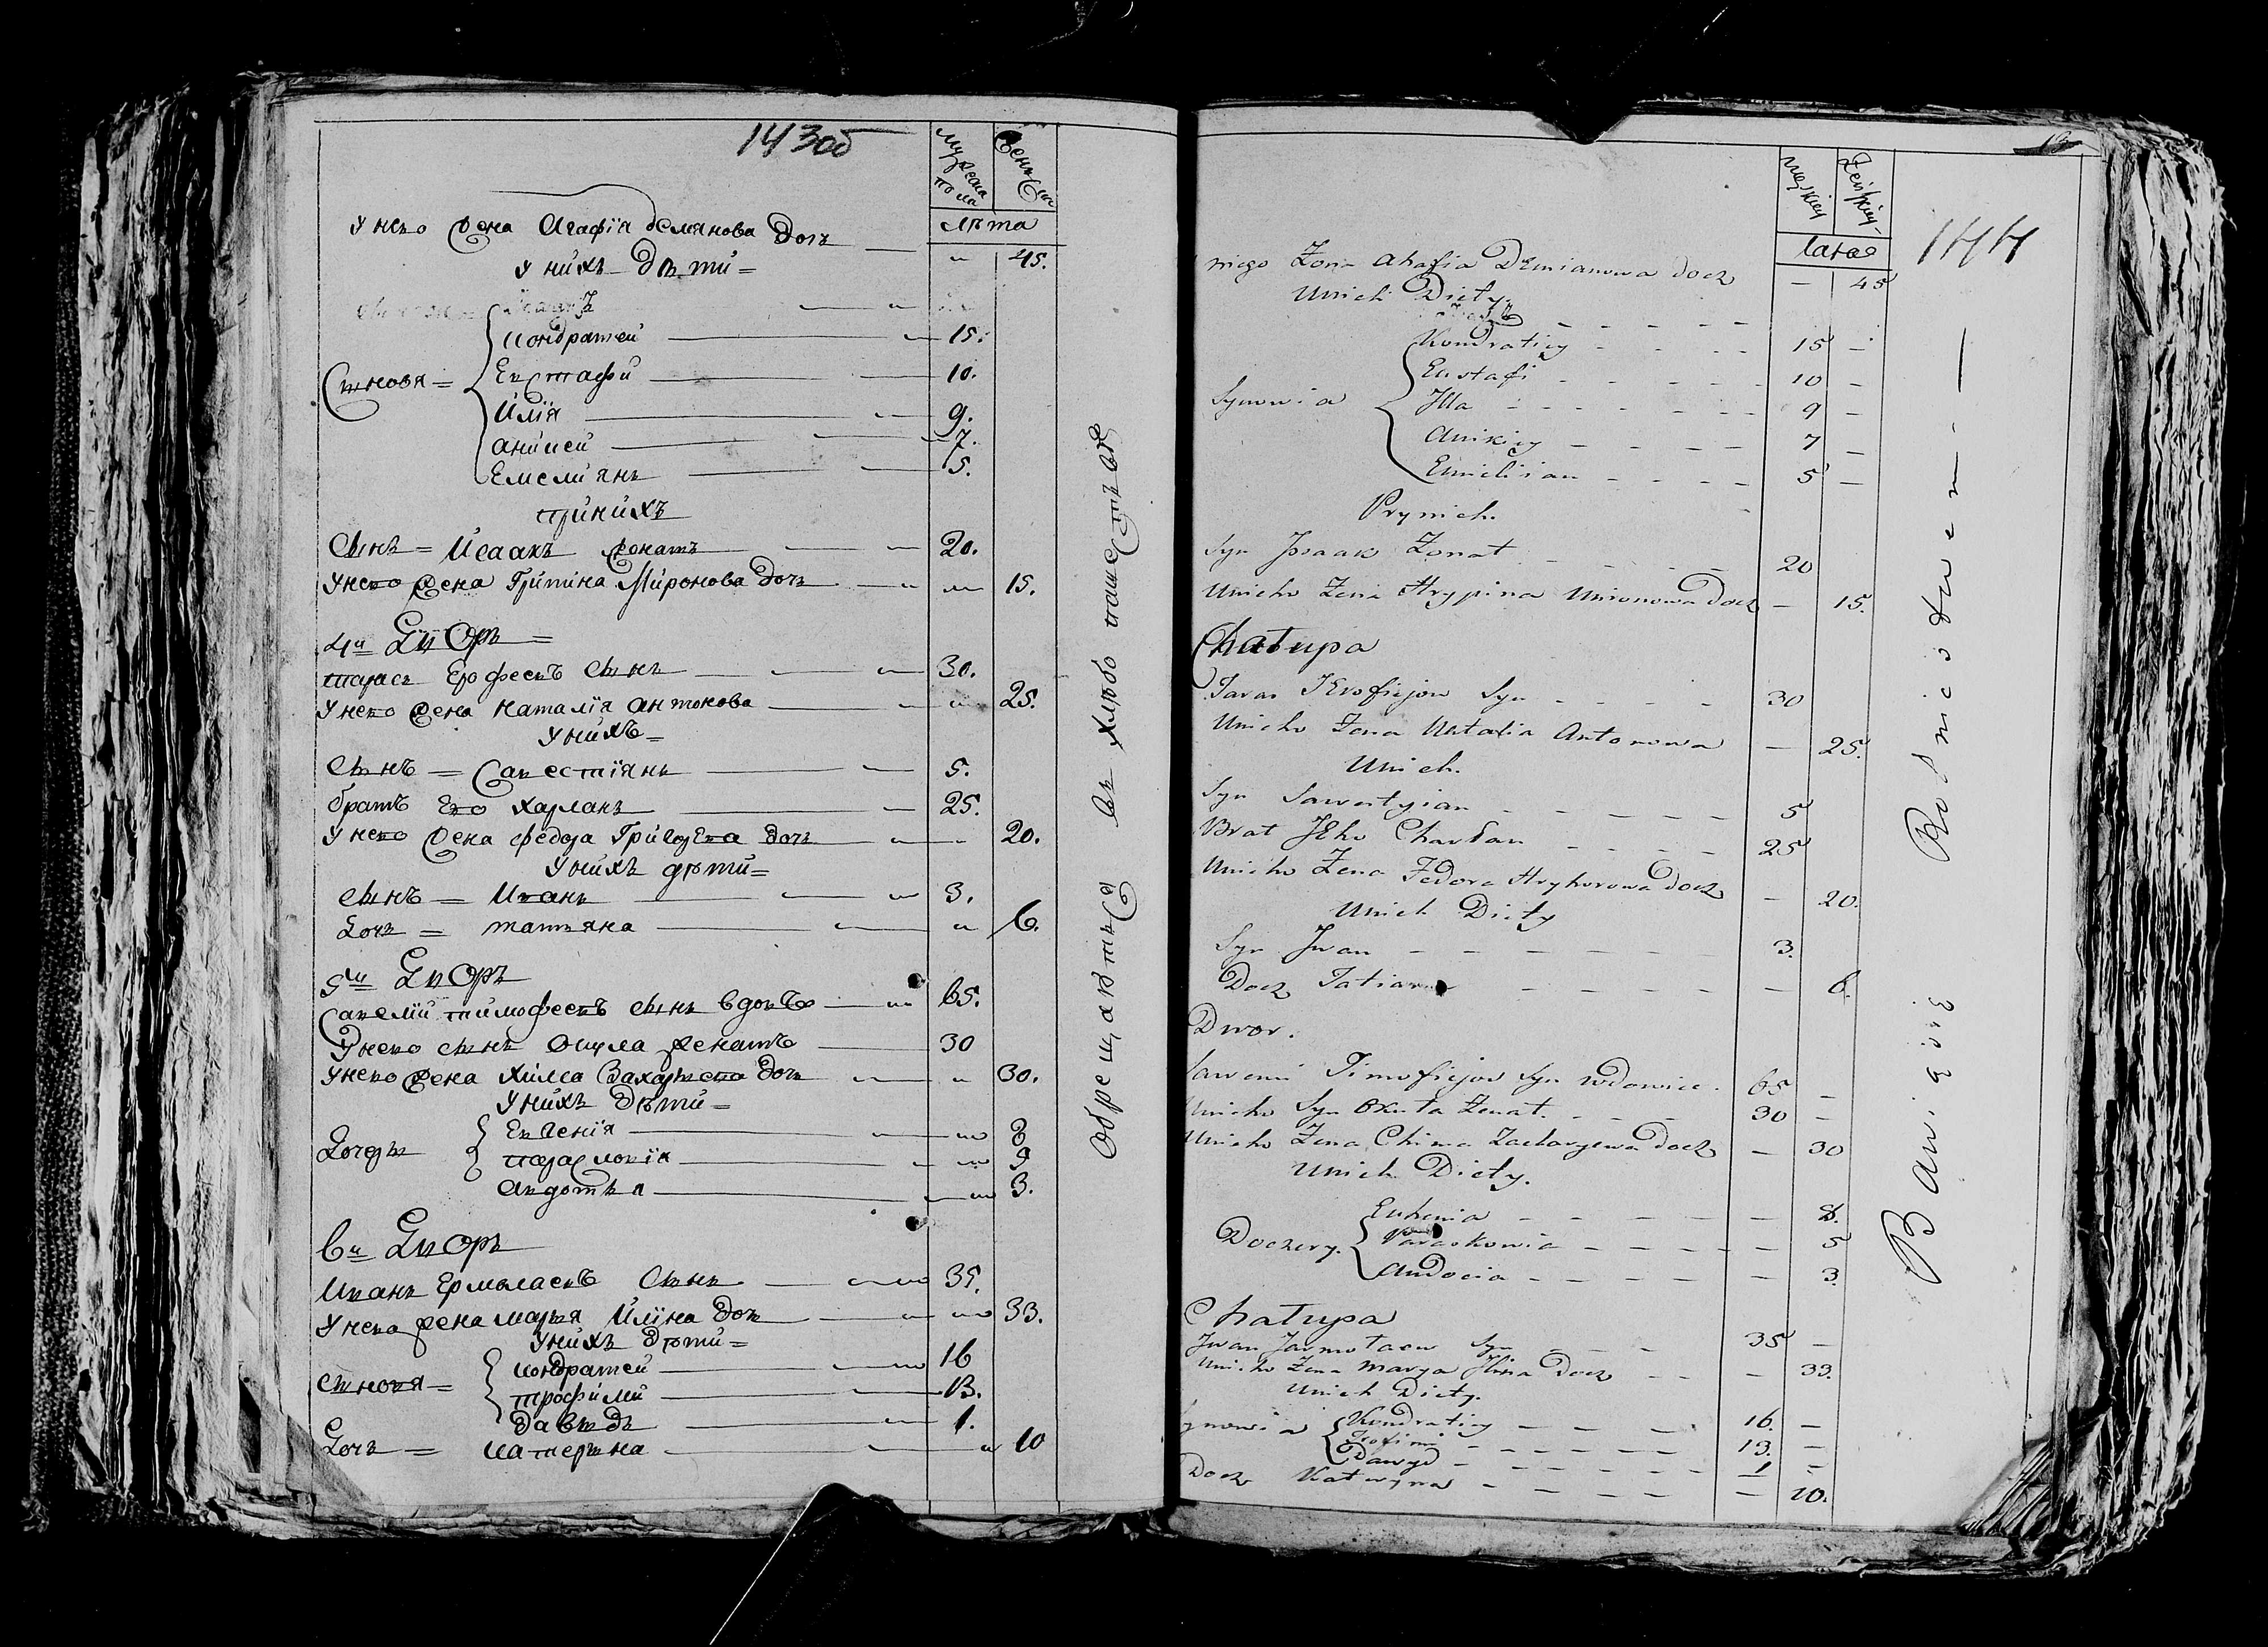 143об
мужеска пола
женска
лѣта
У него жена Агафія демянова дочъ " 45.
У нихъ дѣти =
Кондратей 15.
Сыновя = Евстафи 10.
Илія 9.
Аникей 7.
Емелиянъ 5.
при нихъ
Сынъ = Исаакъ женатъ 20.
У него жена Грипина Миронова дочъ " 15.
4й Дворъ =
Тарасъ Ерофеевъ сынъ 30.
У него жена Наталія Антонова " 25.
У нихъ =
Сынъ = Савестіянъ 5.
братъ Его Харланъ 25.
У него жена Федора Григорева дочъ " 20.
У нихъ дѣти =
Сынъ = Иванъ 3.
Дочъ = татяна " 6.
5й Дворъ
Савелий тимофеевъ сынъ вдовъ 65.
У него сынъ Окула женатъ 30
У него жена Химса Захарьева дочъ " 30.
У нихъ дѣти =
Евгенія " 8
Дочеры парасковія " 5
Авдотья " 3.
6й Дворъ
Иванъ Ермолаевъ сынъ 35.
У него жена марья Иліна дочъ " 33.
У нихъ дѣти =
Кондратей 16
Сыновя = трофими 13.
давыдъ 1.
Дочъ = катерына " 10
Обрещаются въ хлѣбопашествѣ
13
144
męskiey
Żeńskiey
lata
niego Zona Ahafia Demianowa docz — 45
Unich Diety
Kondratiey 15 —
Eustafi 10 —
Synowia Illa 9 —
Anikiey 7 —
Emelisian 5 —
Prynich.
Syn Jsaak Zonat 20
Unieho Zena Hrypina Mironowa Docz — 15.
Chałupa
Taras JErofiejow Syn 30
Unieho Zena Natalia Antonowa — 25.
Unich.
Syn Sawestyian 5
Brat JEho Charłan 25
Unieho Zena Fedora Hryhorowa Docz — 20.
Unich Diety
Syn Jwan 3.
Docz Tatiana — 6.
Dwor.
Sawemi Timofiejow Syn wdowiec. 65 —
Unieho Syn Okuła Zenat. 30 —
Unieho Zena Chima Zacharyewa Docz — 30
Unich Diety.
Euhenia — 8.
Doczery. Paraskowia — 5
Audocia — 3.
Chałupa
Jwan Jarmołaew Syn 35 —
Unieho Zena Marya Jlina Docz — 33.
Unich Diety.
Kondratiey 16. —
Synowia Trofimi 13. —
Dawyd 1 —
Docz Kateryna — 10.
Bawią się Rolnictwem —